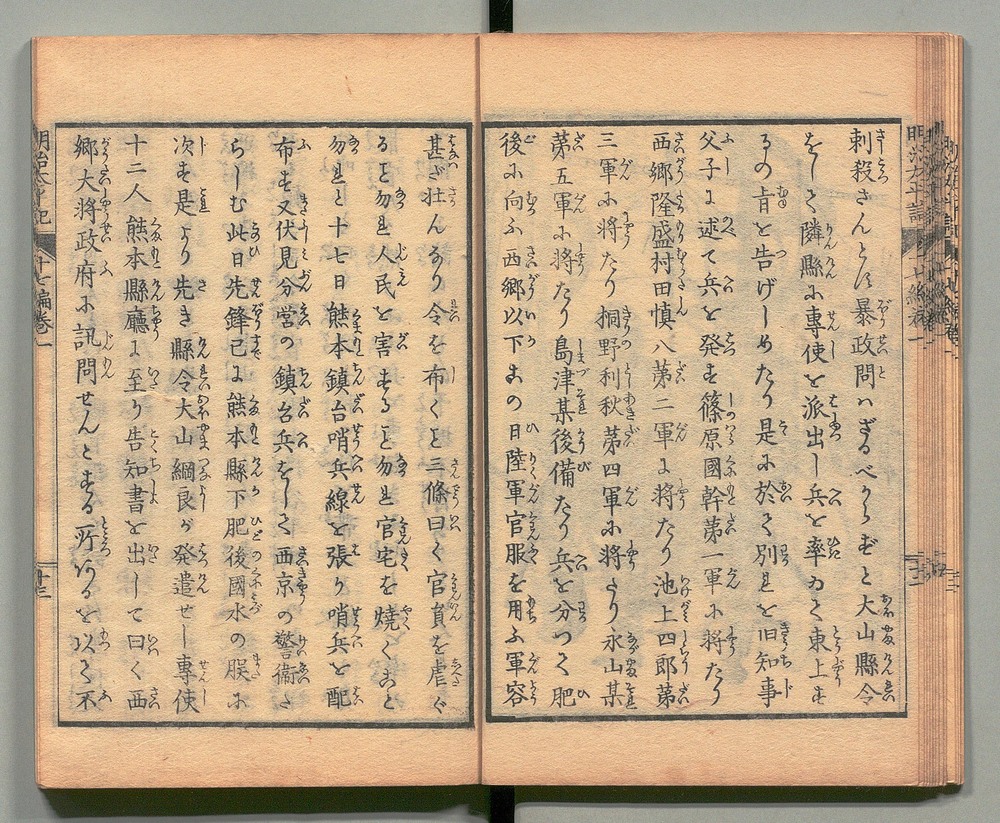 刺殺さんとは暴政問ハざるべからずと大山縣令
をして隣縣に專使を派出し兵を率ゐて東上す
るの旨を告げしめたり是に於て別れを旧知事
父子に述て兵を発す篠原國幹第一軍に将たり
西郷隆盛村田慎八第二軍に将たり池上四郎第
三軍に将たり桐野利秋第四軍に将たり永山某
第五軍に将たり島津某後備たり兵を分つて肥
後に向ふ西郷以下この日陸軍官服を用ふ軍容
甚だ壮んなり令を布くと三條曰く官員を虐ぐ
ること勿れ人民を害すること勿れ官宅を焼くこと
勿れと十七日熊本鎮台哨兵線を張り哨兵を配
布す又伏見分営の鎮台兵をして西京の警衞た
らしむ此日先鋒已に熊本縣下肥後國水の俣に
次す是より先き縣令大山綱良が発遣せし專使
十二人熊本縣廳に至り告知書を出して曰く西
郷大将政府に訊問せんとする所あるを以て不
明治太平記
十七編巻一
十三